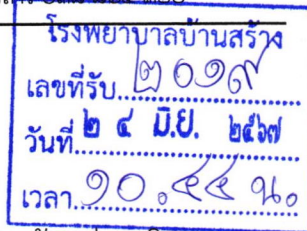 โรงพยาบาลบ้านสร้าง
เลขที่รับ..๒๐๑๙
วันที่ ๒ ๔ มิ.ย. ๒๕๖๗
เวลา.๑๐.๔๔ น.